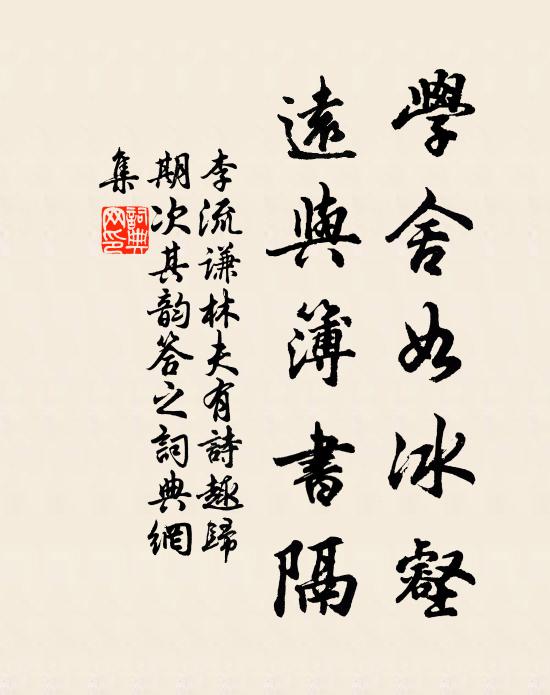 學舍如冰壑
遠與簿書隔
李流谦林夫有詩趣歸
期次其韵答之詞典網
集
詞典網印